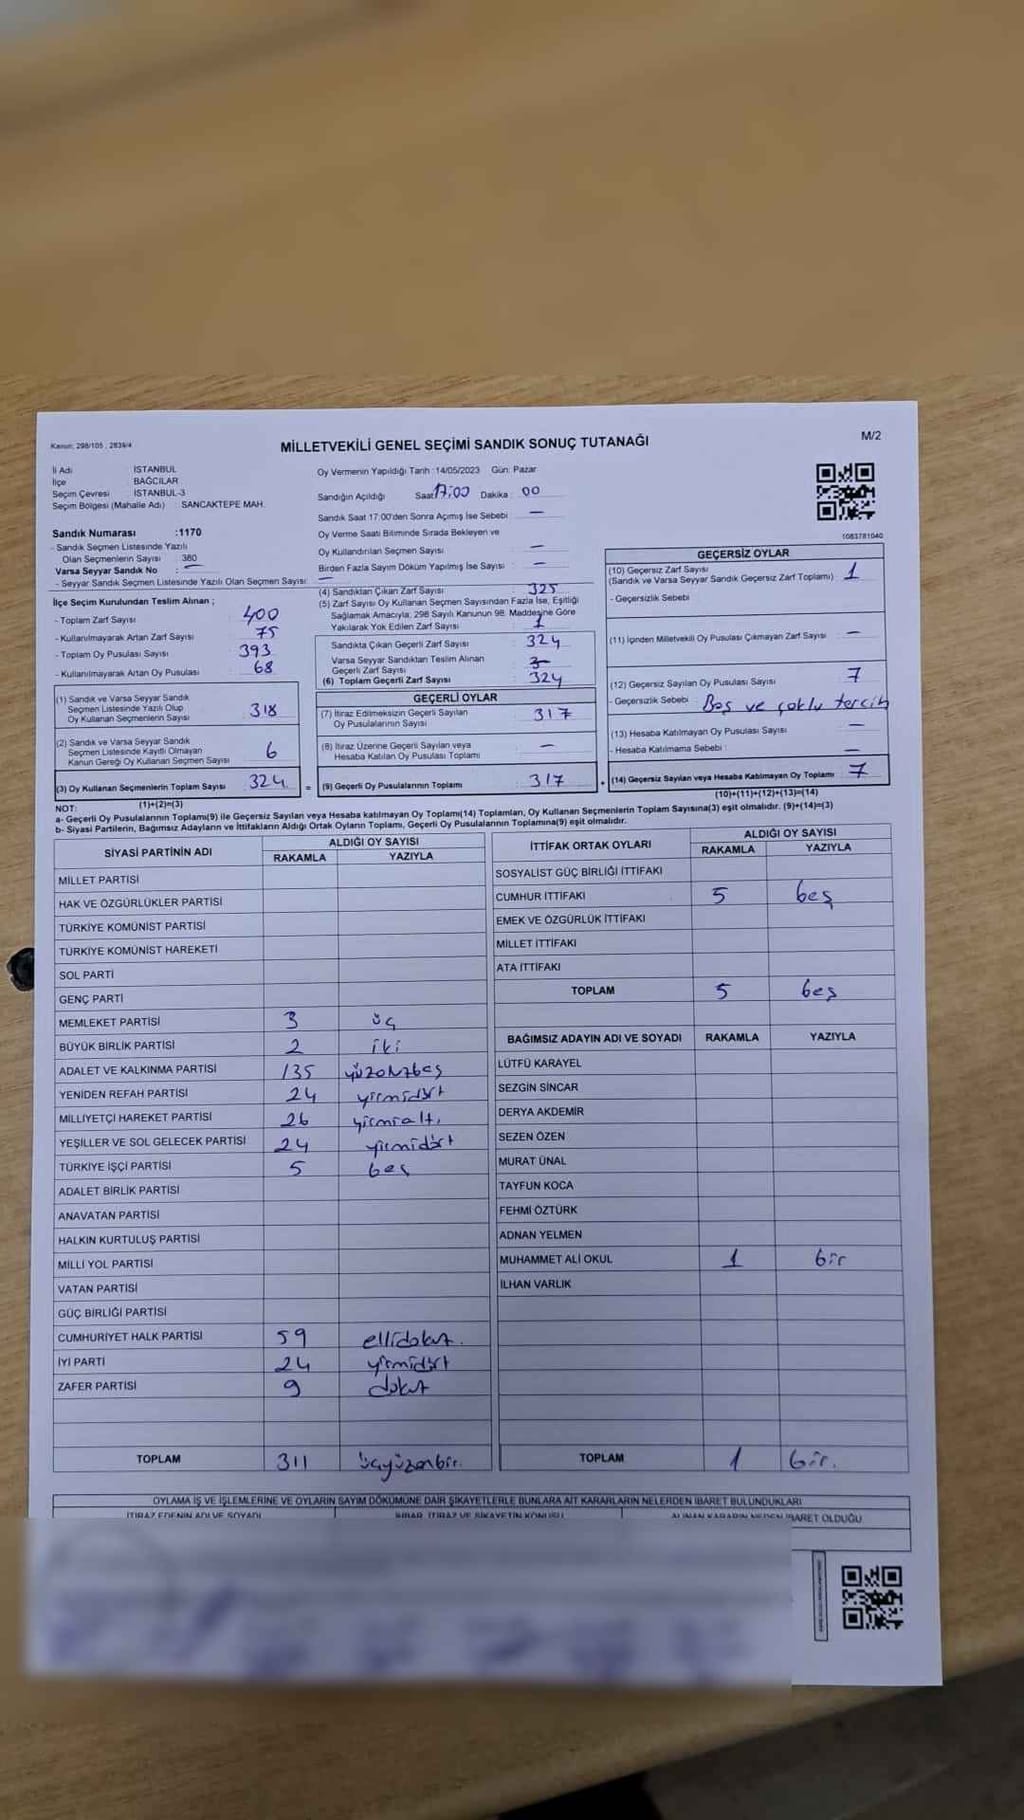 Kanun: 298/105 , 2839/4
MİLLETVEKİLİ GENEL SEÇİMİ SANDIK SONUÇ TUTANAĞI
M/2
İl Adı : İSTANBUL
İlçe : BAĞCILAR
Seçim Çevresi : İSTANBUL-3
Seçim Bölgesi (Mahalle Adı) : SANCAKTEPE MAH.
Sandık Numarası :1170
- Sandık Seçmen Listesinde Yazılı
Olan Seçmenlerin Sayısı : 380
Varsa Seyyar Sandık No : —
- Seyyar Sandık Seçmen Listesinde Yazılı Olan Seçmen Sayısı: —
İlçe Seçim Kurulundan Teslim Alınan ;
- Toplam Zarf Sayısı : 400
- Kullanılmayarak Artan Zarf Sayısı : 75
- Toplam Oy Pusulası Sayısı : 393
- Kullanılmayarak Artan Oy Pusulası : 68
(1) Sandık ve Varsa Seyyar Sandık
Seçmen Listesinde Yazılı Olup
Oy Kullanan Seçmenlerin Sayısı : 318
(2) Sandık ve Varsa Seyyar Sandık
Seçmen Listesinde Kayıtlı Olmayan
Kanun Gereği Oy Kullanan Seçmen Sayısı : 6
(3) Oy Kullanan Seçmenlerin Toplam Sayısı : 324
(1)+(2)=(3)
Oy Vermenin Yapıldığı Tarih :14/05/2023 Gün: Pazar
Sandığın Açıldığı Saat 17:00 Dakika : 00
Sandık Saat 17:00'den Sonra Açımış İse Sebebi : —
Oy Verme Saati Bitiminde Sırada Bekleyen ve
Oy Kullandırılan Seçmen Sayısı : —
Birden Fazla Sayım Döküm Yapılmış İse Sayısı : —
(4) Sandıktan Çıkan Zarf Sayısı : 325
(5) Zarf Sayısı Oy Kullanan Seçmen Sayısından Fazla İse, Eşitliği
Sağlamak Amacıyla; 298 Sayılı Kanunun 98. Maddesine Göre
Yakılarak Yok Edilen Zarf Sayısı : 1
Sandıkta Çıkan Geçerli Zarf Sayısı : 324
Varsa Seyyar Sandıktan Teslim Alınan
Geçerli Zarf Sayısı :
(6) Toplam Geçerli Zarf Sayısı : 324
GEÇERLİ OYLAR
(7) İtiraz Edilmeksizin Geçerli Sayılan
Oy Pusulalarının Sayısı : 317
(8) İtiraz Üzerine Geçerli Sayılan veya
Hesaba Katılan Oy Pusulası Toplamı : —
= (9) Geçerli Oy Pusulalarının Toplamı : 317
1083781040
GEÇERSİZ OYLAR
(10) Geçersiz Zarf Sayısı
(Sandık ve Varsa Seyyar Sandık Geçersiz Zarf Toplamı) : 1
- Geçersizlik Sebebi :
(11) İçinden Milletvekili Oy Pusulası Çıkmayan Zarf Sayısı : —
(12) Geçersiz Sayılan Oy Pusulası Sayısı : 7
- Geçersizlik Sebebi : Boş ve çoklu tercih
(13) Hesaba Katılmayan Oy Pusulası Sayısı : —
- Hesaba Katılmama Sebebi : —
+ (14) Geçersiz Sayılan veya Hesaba Katılmayan Oy Toplamı : 7
(10)+(11)+(12)+(13)=(14)
NOT:
a- Geçerli Oy Pusulalarının Toplamı(9) ile Geçersiz Sayılan veya Hesaba katılmayan Oy Toplamı(14) Toplamları, Oy Kullanan Seçmenlerin Toplam Sayısına(3) eşit olmalıdır. (9)+(14)=(3)
b- Siyasi Partilerin, Bağımsız Adayların ve İttifakların Aldığı Ortak Oyların Toplamı, Geçerli Oy Pusulalarının Toplamına(9) eşit olmalıdır.
SİYASİ PARTİNİN ADI ALDIĞI OY SAYISI
RAKAMLA YAZIYLA
MİLLET PARTİSİ
HAK VE ÖZGÜRLÜKLER PARTİSİ
TÜRKİYE KOMÜNİST PARTİSİ
TÜRKİYE KOMÜNİST HAREKETİ
SOL PARTİ
GENÇ PARTİ
MEMLEKET PARTİSİ 3 üç
BÜYÜK BİRLİK PARTİSİ 2 iki
ADALET VE KALKINMA PARTİSİ 135 yüzotuzbeş
YENİDEN REFAH PARTİSİ 24 yirmidört
MİLLİYETÇİ HAREKET PARTİSİ 26 yirmialtı
YEŞİLLER VE SOL GELECEK PARTİSİ 24 yirmidört
TÜRKİYE İŞÇİ PARTİSİ 5 beş
ADALET BİRLİK PARTİSİ
ANAVATAN PARTİSİ
HALKIN KURTULUŞ PARTİSİ
MİLLİ YOL PARTİSİ
VATAN PARTİSİ
GÜÇ BİRLİĞİ PARTİSİ
CUMHURİYET HALK PARTİSİ 59 ellidokuz.
İYİ PARTİ 24 yirmidört
ZAFER PARTİSİ 9 dokuz
TOPLAM 311 üçyüzonbir.
İTTİFAK ORTAK OYLARI ALDIĞI OY SAYISI
RAKAMLA YAZIYLA
SOSYALİST GÜÇ BİRLİĞİ İTTİFAKI
CUMHUR İTTİFAKI 5 beş
EMEK VE ÖZGÜRLÜK İTTİFAKI
MİLLET İTTİFAKI
ATA İTTİFAKI
TOPLAM 5 beş
BAĞIMSIZ ADAYIN ADI VE SOYADI RAKAMLA YAZIYLA
LÜTFÜ KARAYEL
SEZGİN SİNCAR
DERYA AKDEMİR
SEZEN ÖZEN
MURAT ÜNAL
TAYFUN KOCA
FEHMİ ÖZTÜRK
ADNAN YELMEN
MUHAMMET ALİ OKUL 1 bir
İLHAN VARLIK
TOPLAM 1 bir.
OYLAMA İŞ VE İŞLEMLERİNE VE OYLARIN SAYIM DÖKÜMÜNE DAİR ŞİKAYETLERLE BUNLARA AİT KARARLARIN NELERDEN İBARET BULUNDUKLARI
İTİRAZ EDENİN ADI VE SOYADI İHBAR, İTİRAZ VE ŞİKAYETİN KONUSU ALINAN KARARIN NEDEN İBARET OLDUĞU